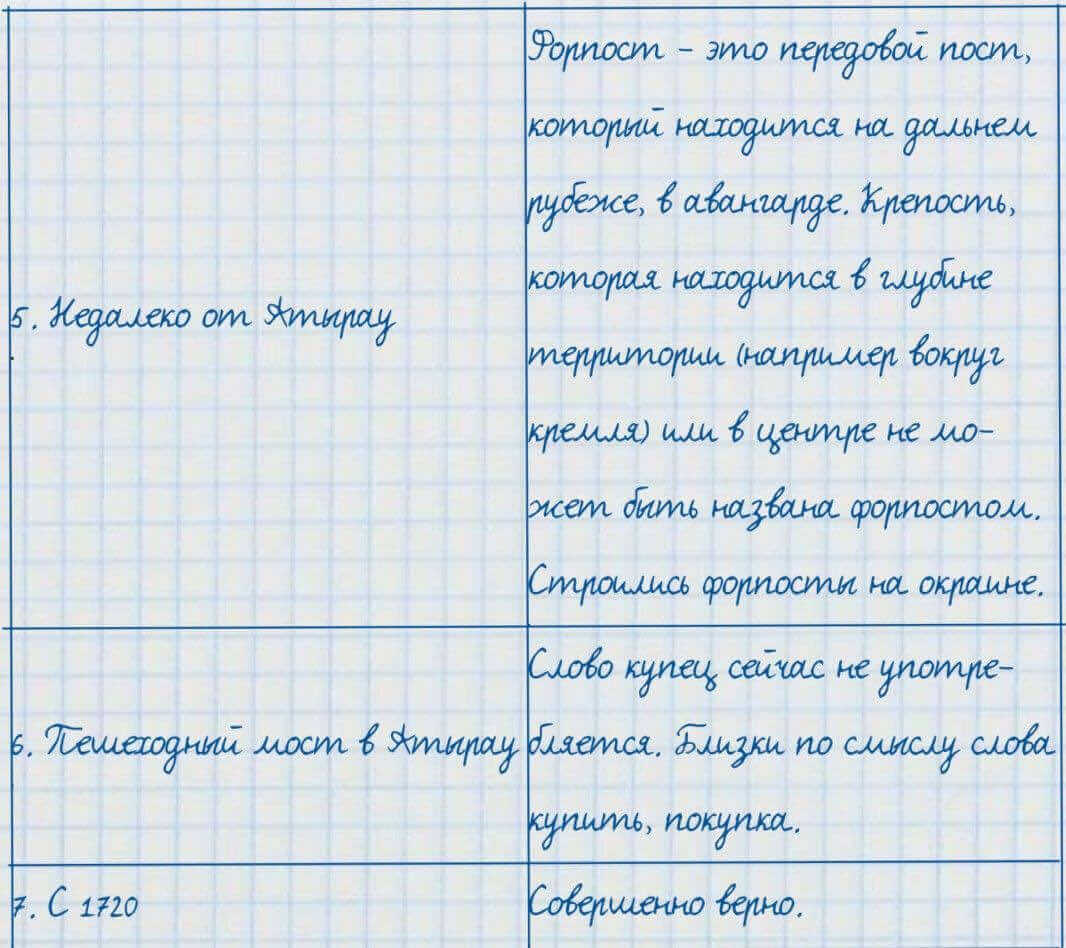 Форпост – это передовой пост,
который находится на дальнем
рубеже, в авангарде. Крепость,
которая находится в глубине
5. Недалеко от Атырау
территории (например вокруг
кремля) или в центре не мо-
жет быть названа форпостом.
Строились форпосты на окраине.
Слово купец сейчас не употре-
6. Пешеходный мост в Атырау
бляется. Близки по смыслу слова
купить, покупка.
7. С 1720
Совершенно верно.